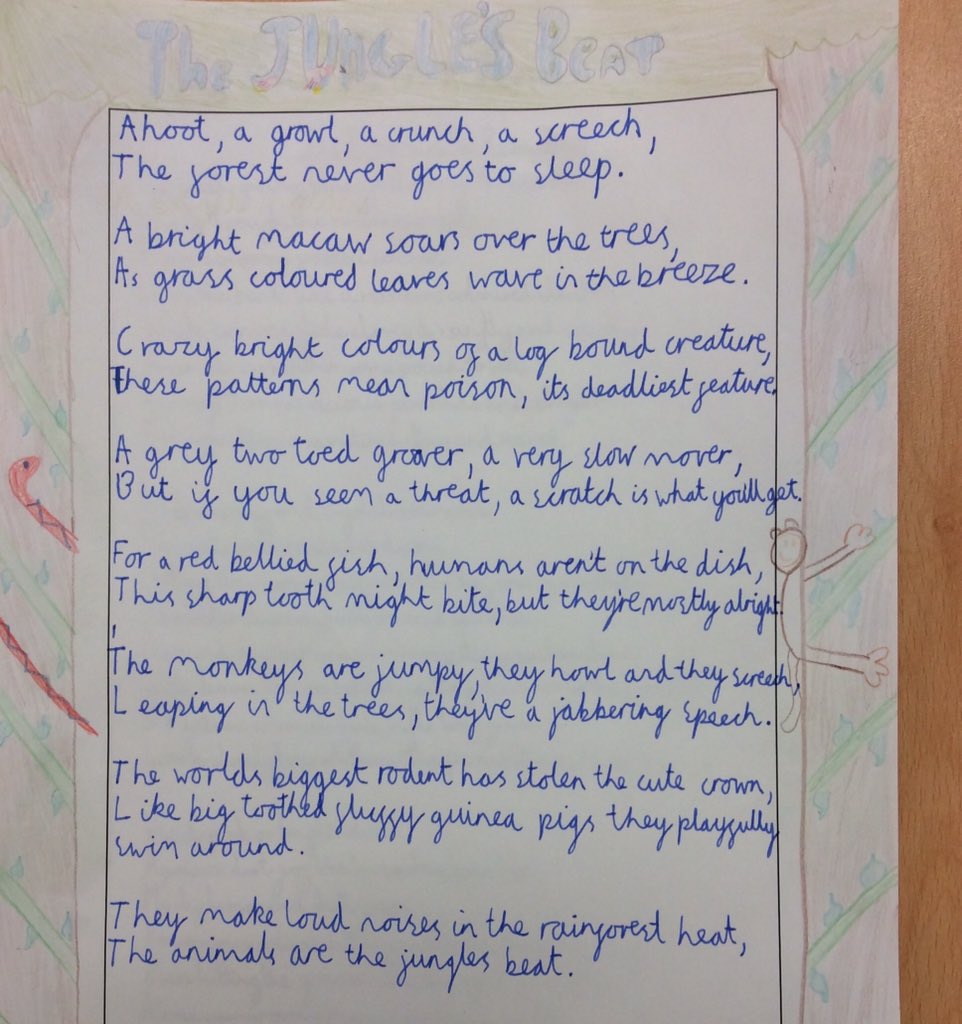 The JUNGLE'S Beat
A hoot, a growl, a crunch, a screech,
The forest never goes to sleep.
A bright macaw soars over the trees,
As grass coloured leaves wave in the breeze.
Crazy bright colours of a log bound creature,
these patterns mean poison, its deadliest feature.
A grey two toed groover, a very slow mover,
But if you seen a threat, a scratch is what you'll get.
For a red bellied fish, humans aren't on the dish,
This sharp tooth might bite, but they're mostly alright.
The monkeys are jumpy, they howl and they screech,
Leaping in the trees, they've a jabbering speech.
The worlds biggest rodent has stolen the cute crown,
Like big toothed fluffy guinea pigs they playfully
swim around.
They make loud noises in the rainforest heat,
The animals are the jungles beat.